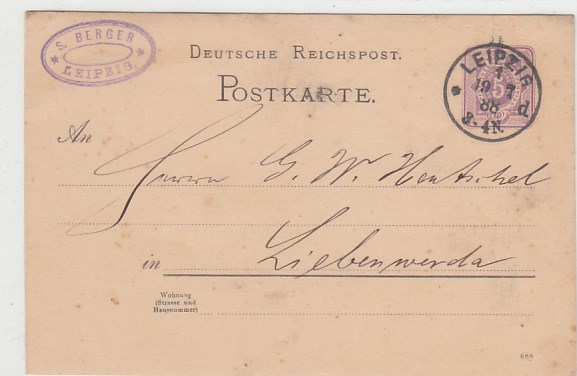 S. BERGER
* LEIPZIG. *
DEUTSCHE REICHSPOST.
POSTKARTE.
* LEIPZIG
1
10 7
88
3-4N. d.
5
An
Herrn G. W. Hentschel
in Liebenwerda
Wohnung
(Strasse und
Hausnummer)